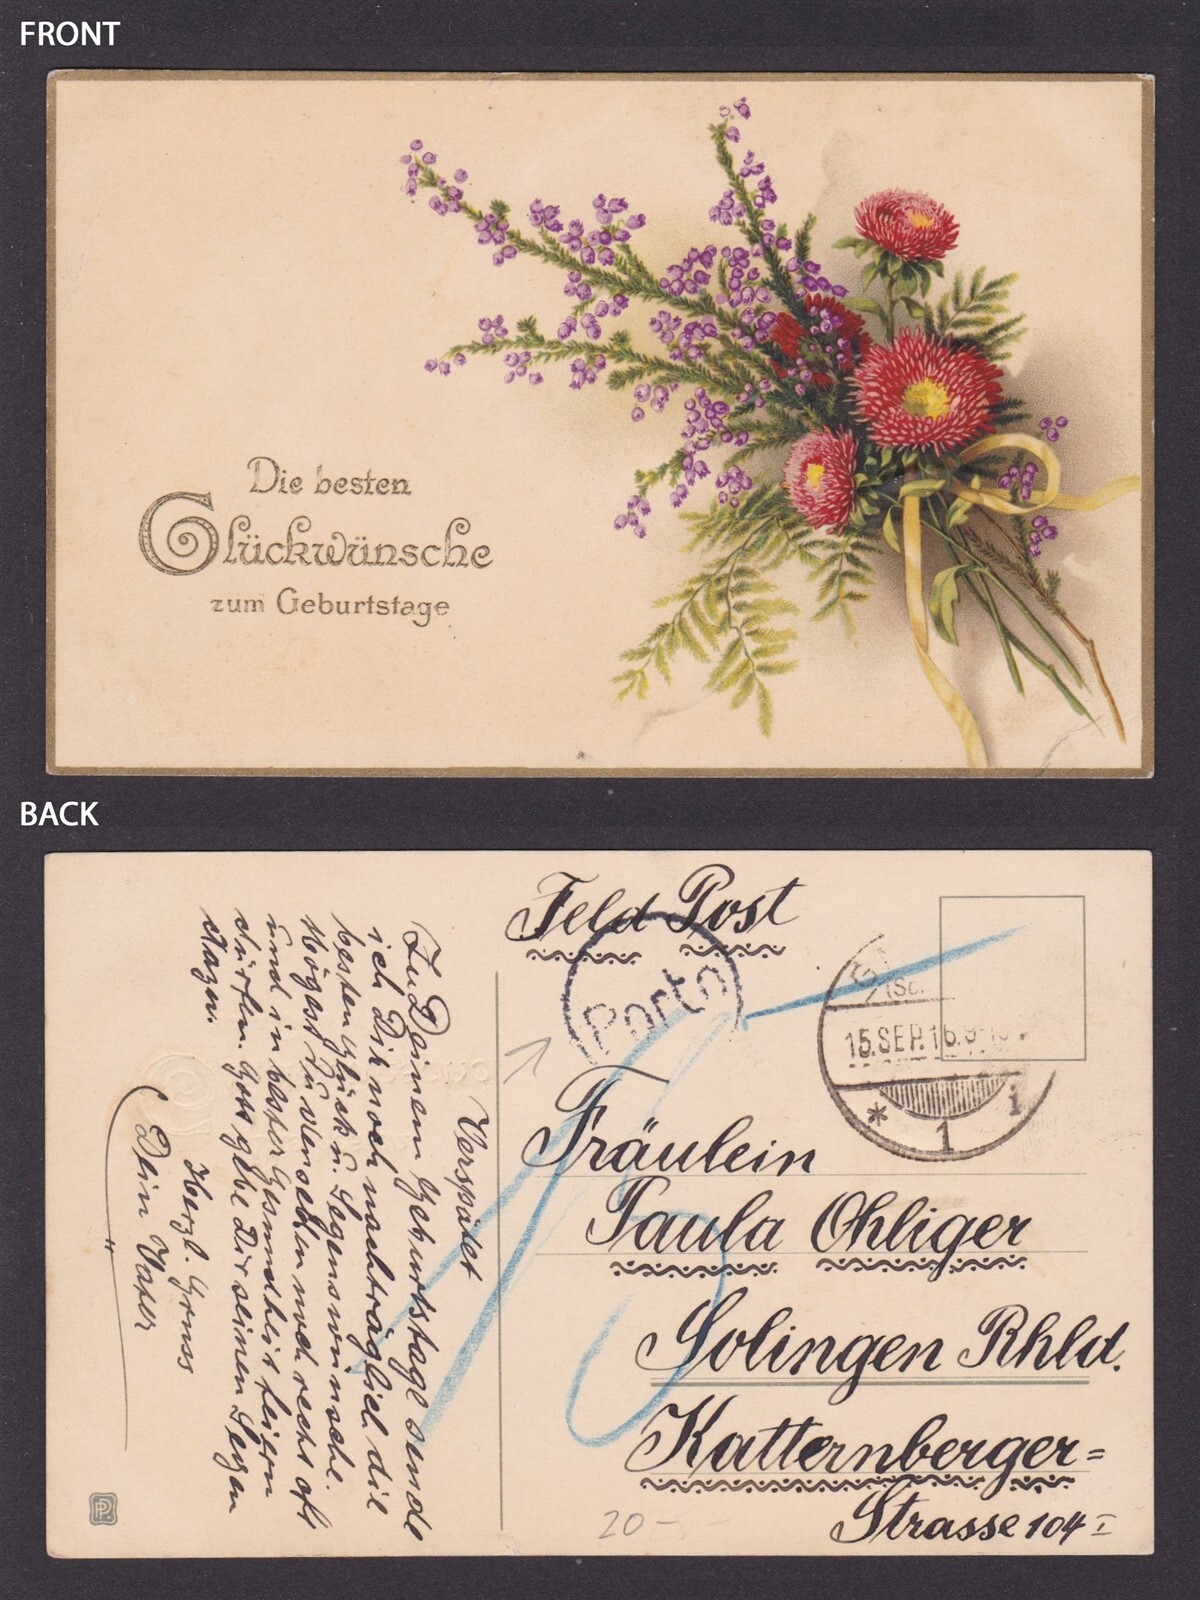 FRONT
Die besten
Glückwünsche
zum Geburtstage
BACK
Feld Post
Porto
15.SEP.16.
* 1 i
Fräulein
Paula Ohliger
Solingen Rhld.
Katternberger=
Strasse 104 I
20-
Verspätet
Zu Deinem Geburtstage sende
ich Dir noch nachträglich die
besten Glück u. Segenswünsche.
Mögest Du denselben noch recht oft
und in bester Gesundheit feiern
dürfen. Gott gebe Dir seinen Segen
dazu.
Herzl. Gruss
Dein Vater
PP.